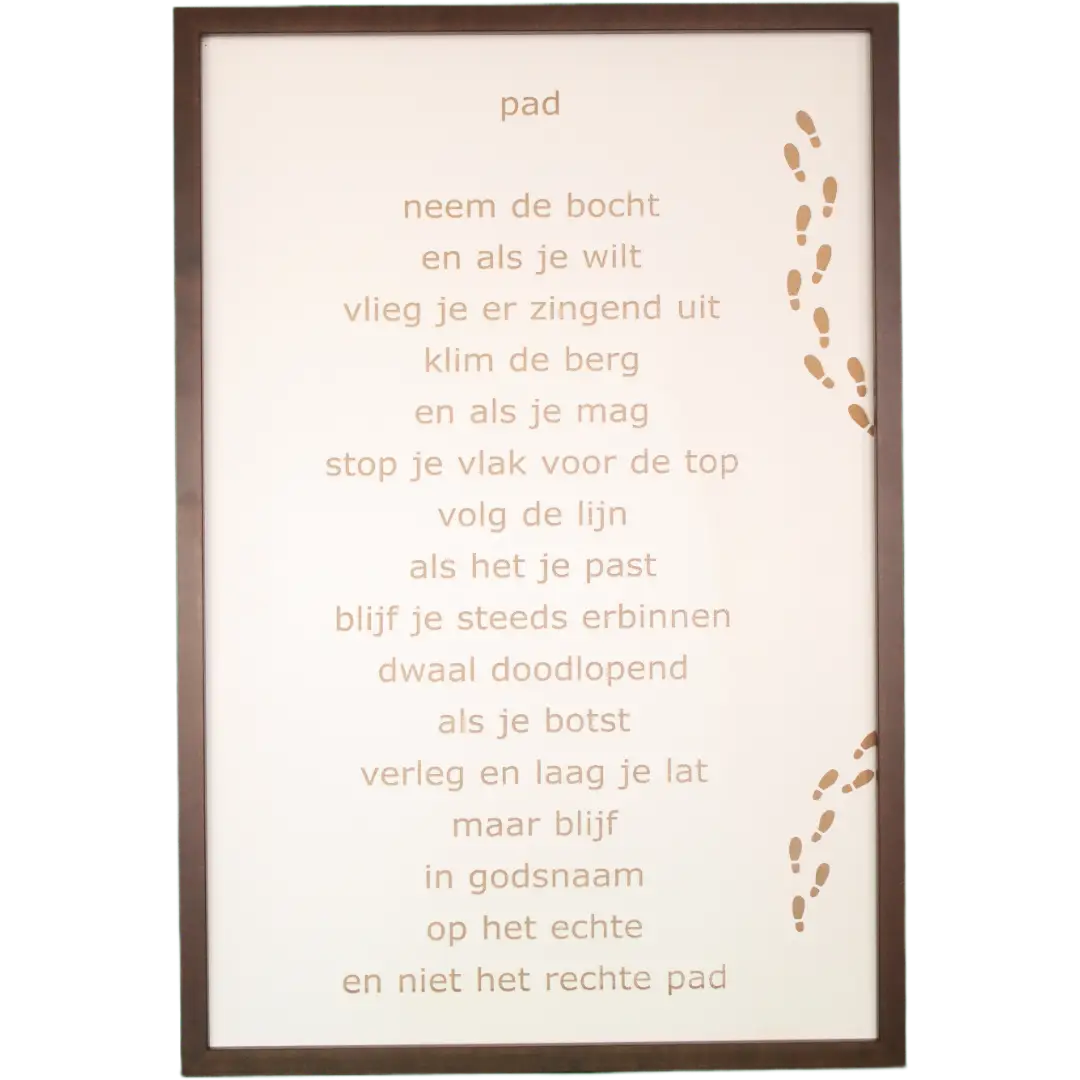 pad
neem de bocht
en als je wilt
vlieg je er zingend uit
klim de berg
en als je mag
stop je vlak voor de top
volg de lijn
als het je past
blijf je steeds erbinnen
dwaal doodlopend
als je botst
verleg en laag je lat
maar blijf
in godsnaam
op het echte
en niet het rechte pad